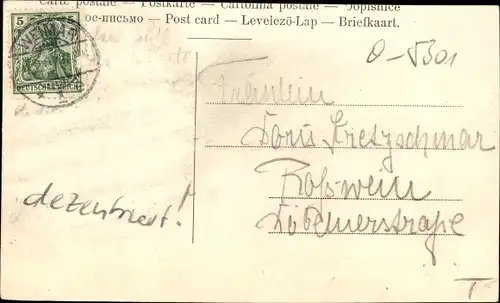 Carte postale – Postkarte – Cartolina postale – Dopisnice
ое-письмо – Post card – Levelező-Lap – Briefkaart.
5
WEIMAR
DEUTSCHES REICH
O-5301
Fräulein
Doris Kretzschmar
Roßwein
Döbelnerstraße
dezentriert!
T